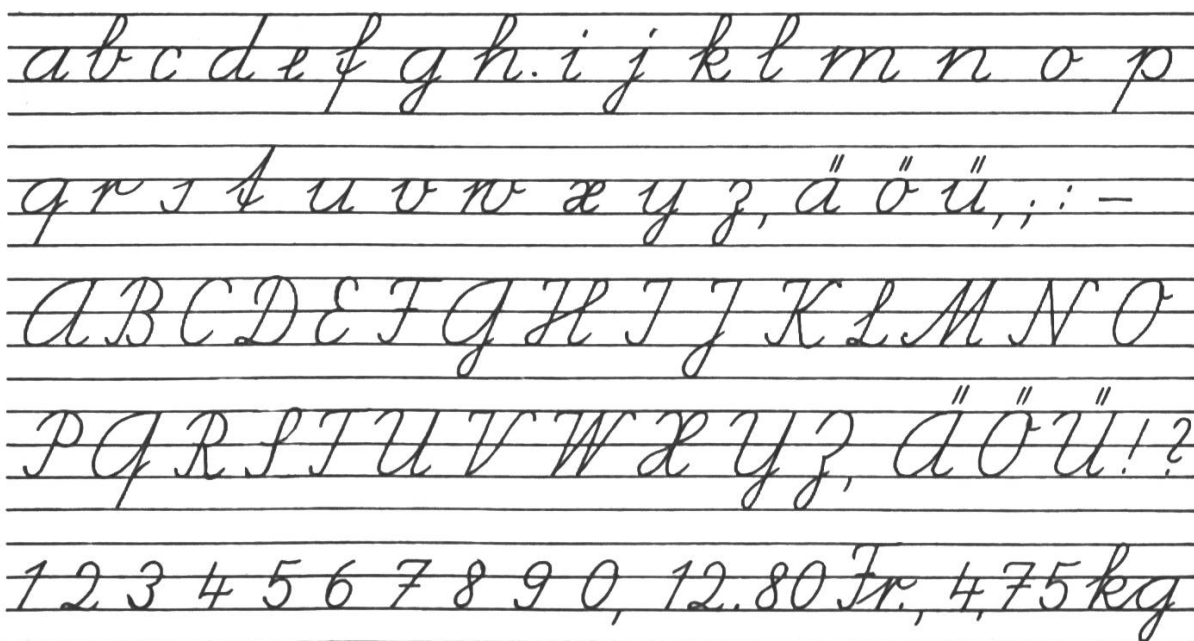 a b c d e f g h. i j k l m n o p
q r s t u v w x y z, ä ö ü, ; : –
A B C D E F G H I J K L M N O
P Q R S T U V W X Y Z, Ä Ö Ü ! ?
1 2 3 4 5 6 7 8 9 0, 12.80 Fr., 4,75 kg